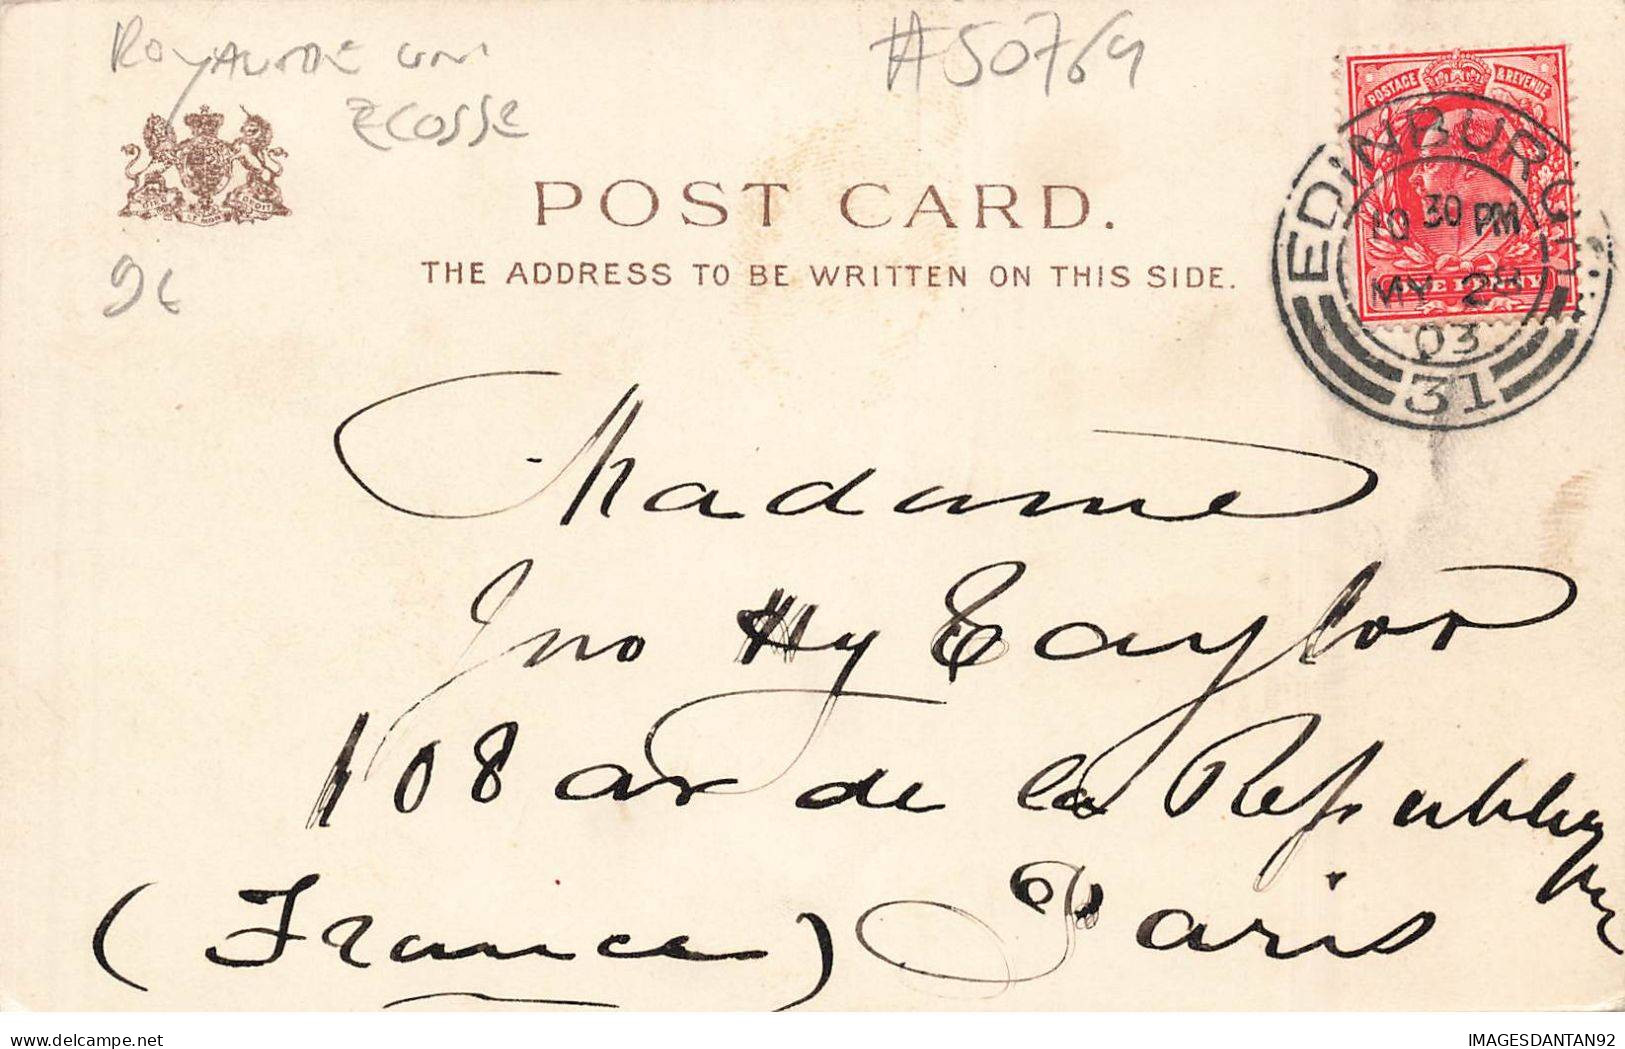 ROYAUME UNI
ECOSSE
#50769
9€
POSTAGE & REVENUE
ONE PENNY
EDINBURGH
10 30 PM
MY 28
03
31
POST CARD.
THE ADDRESS TO BE WRITTEN ON THIS SIDE.
Madame
Jno Hy Taylor
108 av de la Republique
(France) Paris
IMAGESDANTAN92